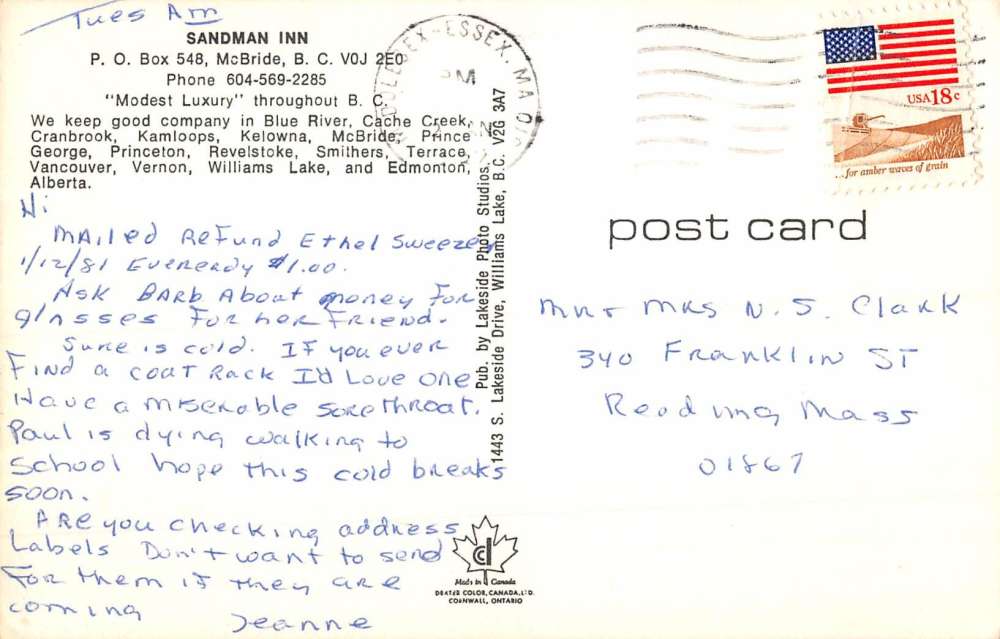 Tues Am
SANDMAN INN
P. O. Box 548, McBride, B. C. V0J 2E0
Phone 604-569-2285
"Modest Luxury" throughout B. C.
We keep good company in Blue River, Cache Creek,
Cranbrook, Kamloops, Kelowna, McBride, Prince
George, Princeton, Revelstoke, Smithers, Terrace,
Vancouver, Vernon, Williams Lake, and Edmonton,
Alberta.
Hi
Mailed Refund Ethel Sweezey
1/12/81 Eveready $1.00.
Ask Barb About money For
glasses For her Friend.
Sure is cold. If you ever
Find a coat Rack I'd Love one
Have a miserable sore throat.
Paul is dying walking to
School hope this cold breaks
soon.
Are you checking address
Labels Don't want to send
For them if they are
coming
Jeanne
Pub. by Lakeside Photo Studios,
1443 S. Lakeside Drive, Williams Lake, B.C. V2G 3A7
Made in Canada
DEXTER COLOR, CANADA, LTD.
CORNWALL, ONTARIO
MIDDLESEX-ESSEX, MA
PM
USA 18c
...for amber waves of grain
post card
Mr + Mrs N. S. Clark
340 Franklin ST
Reading Mass
01867